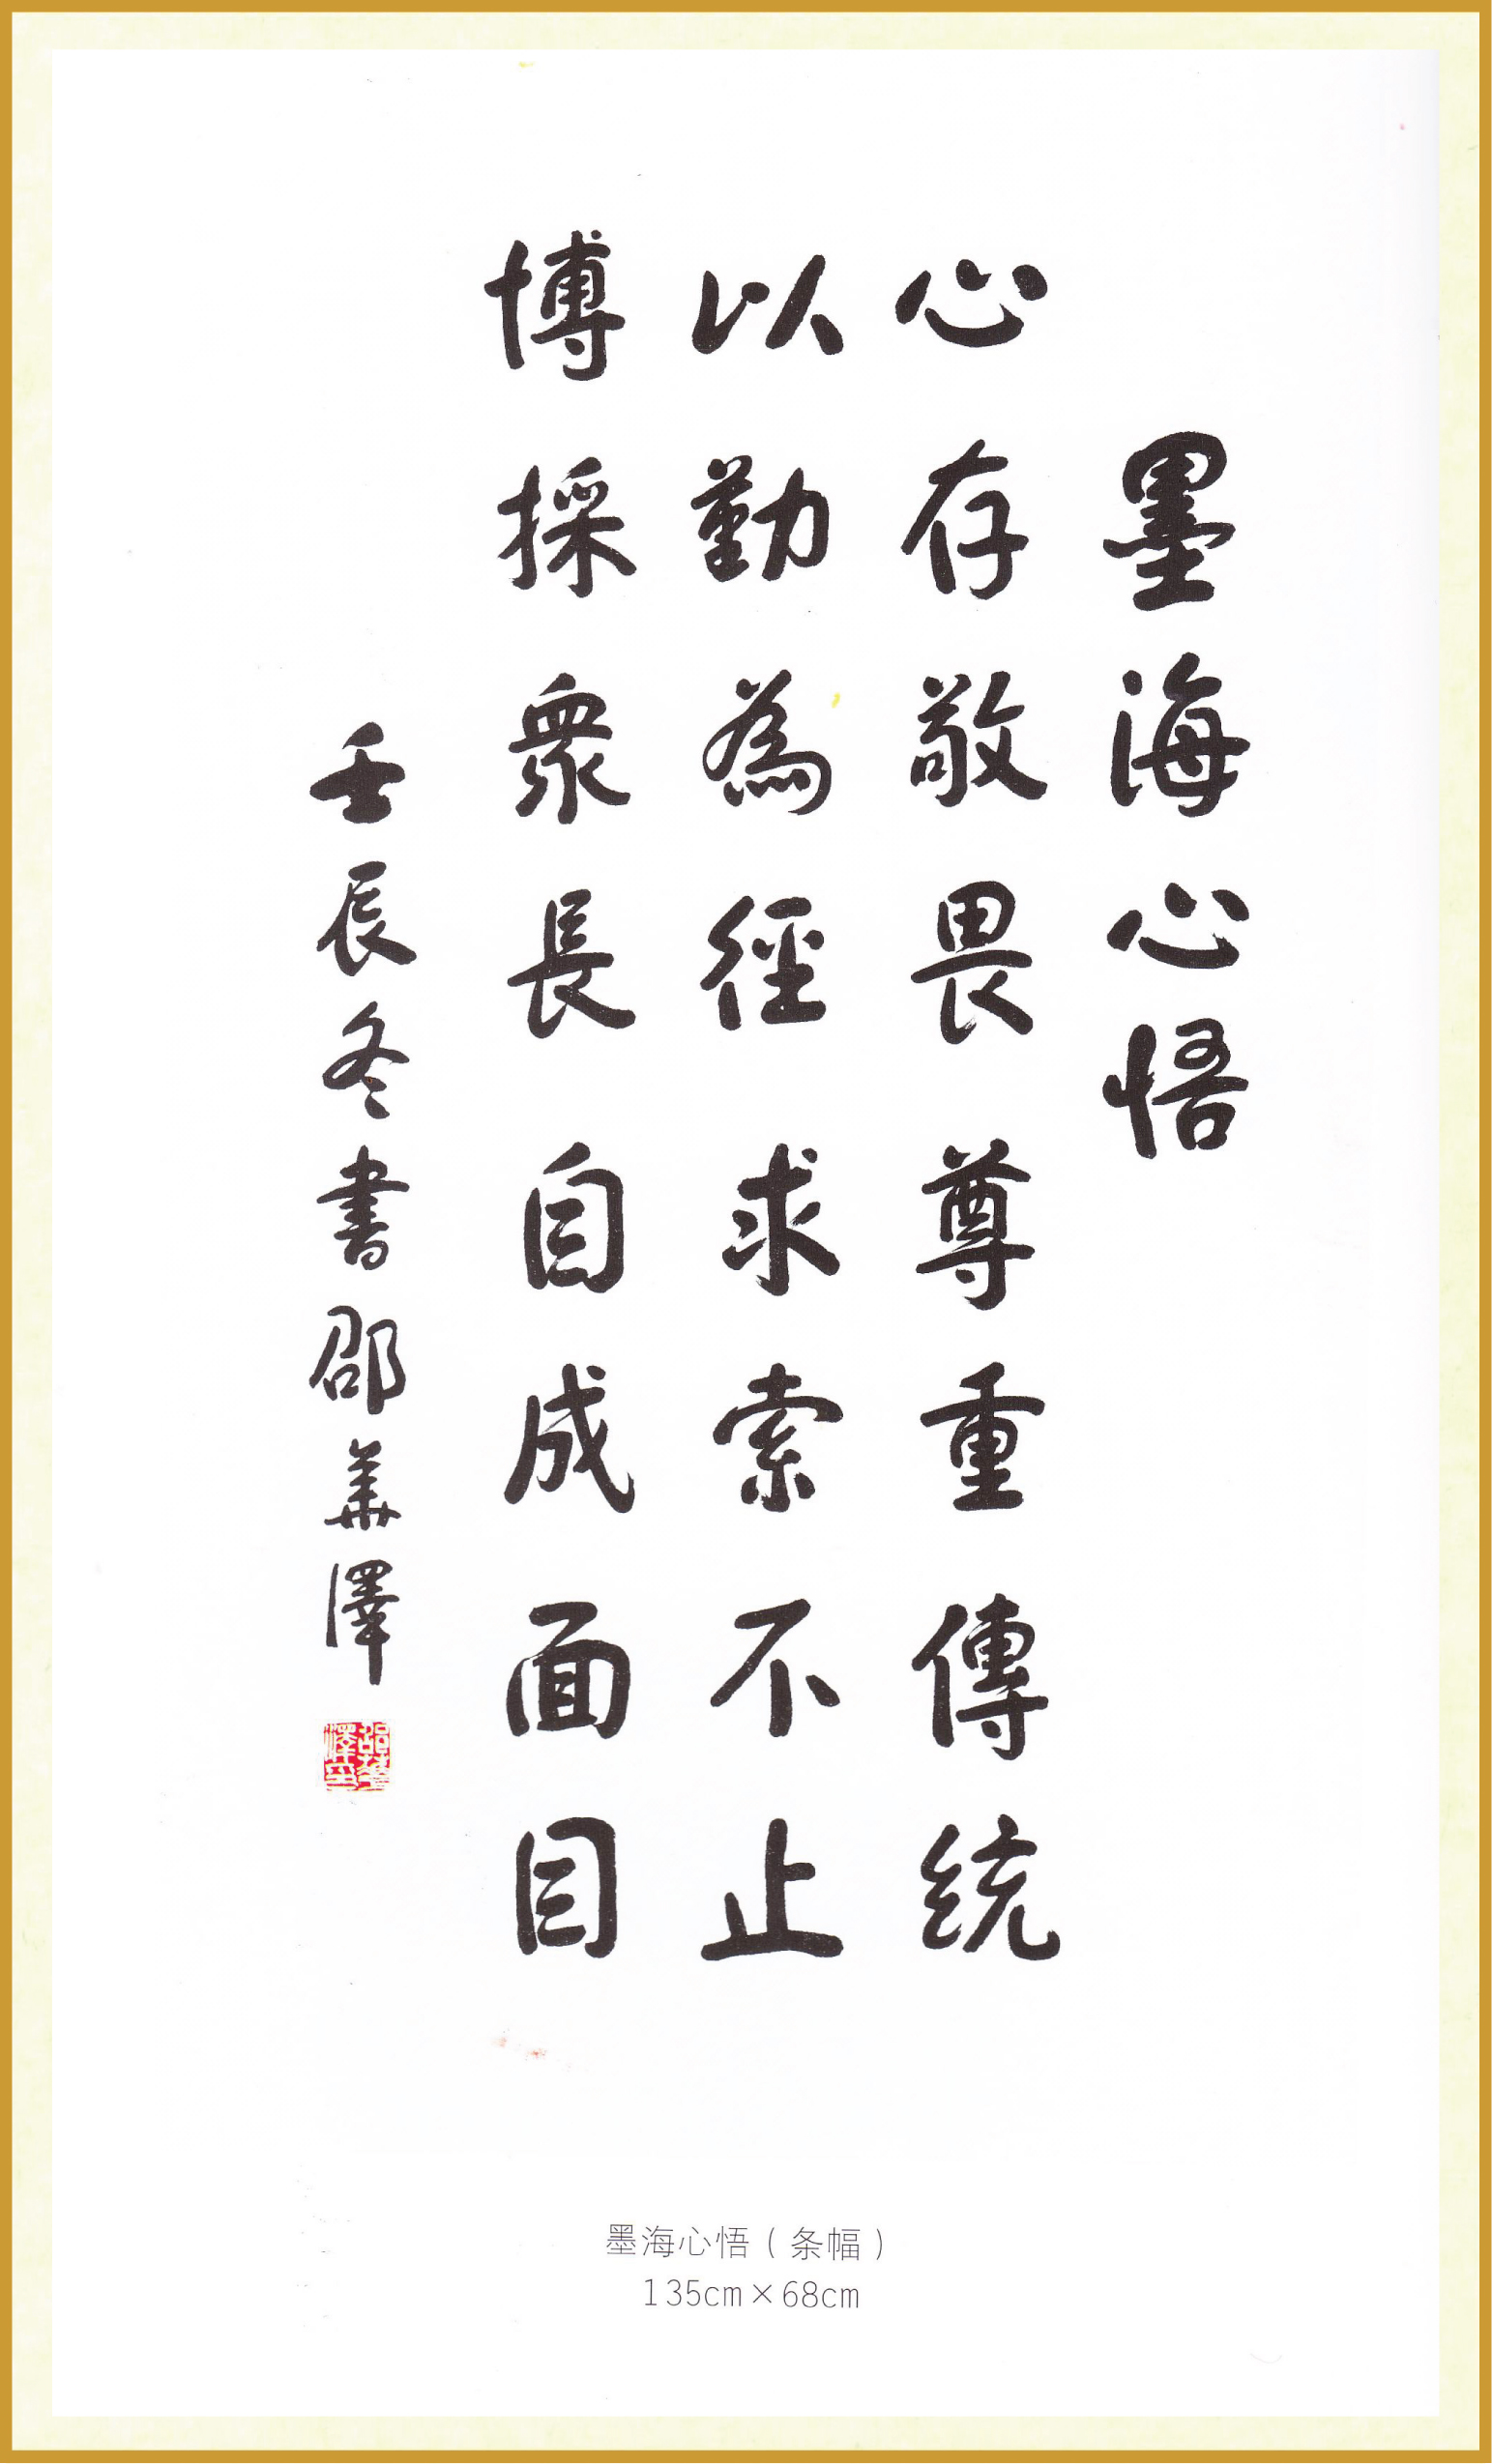 墨海心悟
心存敬畏尊重傳統
以勤為徑求索不止
博採衆長自成面目
壬辰冬書邵華澤
邵華澤印
墨海心悟（条幅）
135cm×68cm